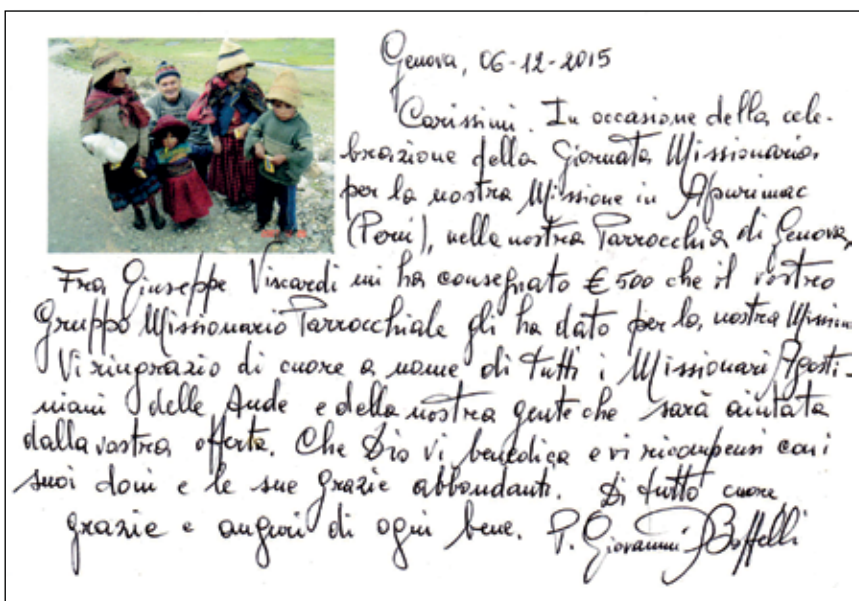 Genova, 06-12-2015
Carissimi. In occasione della cele-
brazione della Giornata Missionaria
per la nostra Missione in Apurimac
(Perù), nella nostra Parrocchia di Genova,
Fra Giuseppe Viscardi mi ha consegnato € 500 che il vostro
Gruppo Missionario Parrocchiale gli ha dato per la nostra Missione
Vi ringrazio di cuore a nome di tutti i Missionari Agosti-
niani delle Ande e della nostra gente che sarà aiutata
dalla vostra offerta. Che Dio vi benedica e vi ricompensi con i
suoi doni e le sue grazie abbondanti. Di tutto cuore
grazie e auguri di ogni bene. P. Giovanni Boffelli